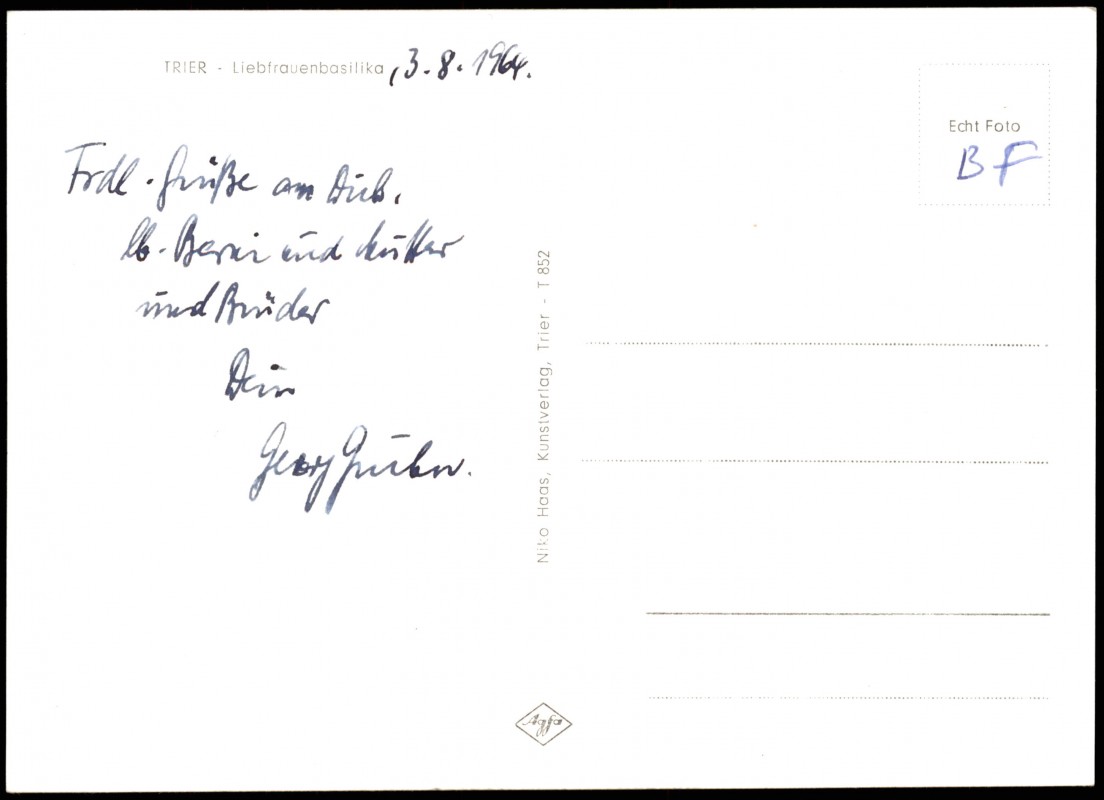 TRIER - Liebfrauenbasilika, 3.8.1964.
Echt Foto
BF
Frdl. Grüße an Dich,
lb. Berni und Mutter
und Brüder
Dein
Georg
Niko Haas, Kunstverlag, Trier - T 852
Agfa